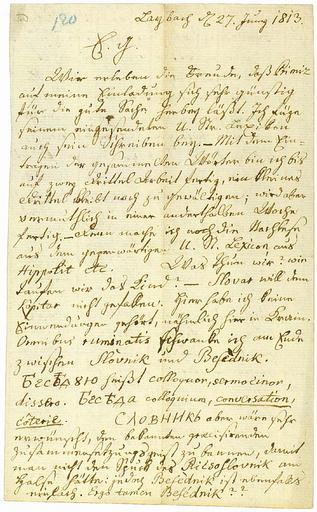 120
Laybach d 27. Juny 1813.
E. H.
Wir erleben die Freude, daß Primiz
auf meine Einladung sich sehr günstig
für die gute Sache herbey läßt. Ich füge
seinem eingesendeten U. St. Lexikon
auch sein Schreiben bey. — Mit dem Ein-
tragen der gesammelten Wörter bin ich bis
auf zwey Drittel Arbeit fertig, ein kleines
Drittel bleibt noch zu gewältigen; wird aber
vermuthlich in einer anderthalben Woche
fertig. — Denn mache ich noch die Nachlese
aus dem gegenwärtigen U. St. Lexicon aus
Hippolit etc. Was thun wir: wie
taufen wir das Kind? — Slovar will dem
Kopitar nicht gefallen. Hier habe ich keine
Einwendungen gehört, nähmlich hier in Krain.
Omnibus ruminatis schwanke ich am Ende
zwischen Slovnik und Beſédnik.
БЕСѢДꙋЮ heißt colloquor, sermocinor,
dissero. БЕСѢДА colloquium, conversation,
côterie. СЛОВНИКЬ aber wäre sehr
erwünscht, den bekannten gräcisirenden
Zusammensetzungsgeist zu bannen, damit
man nicht den Spuck des Riłsoslovnik am
Halse hätte: jedoch Beſédnik ist ebenfalls
einfach. Ergo tamen Beſédnik??